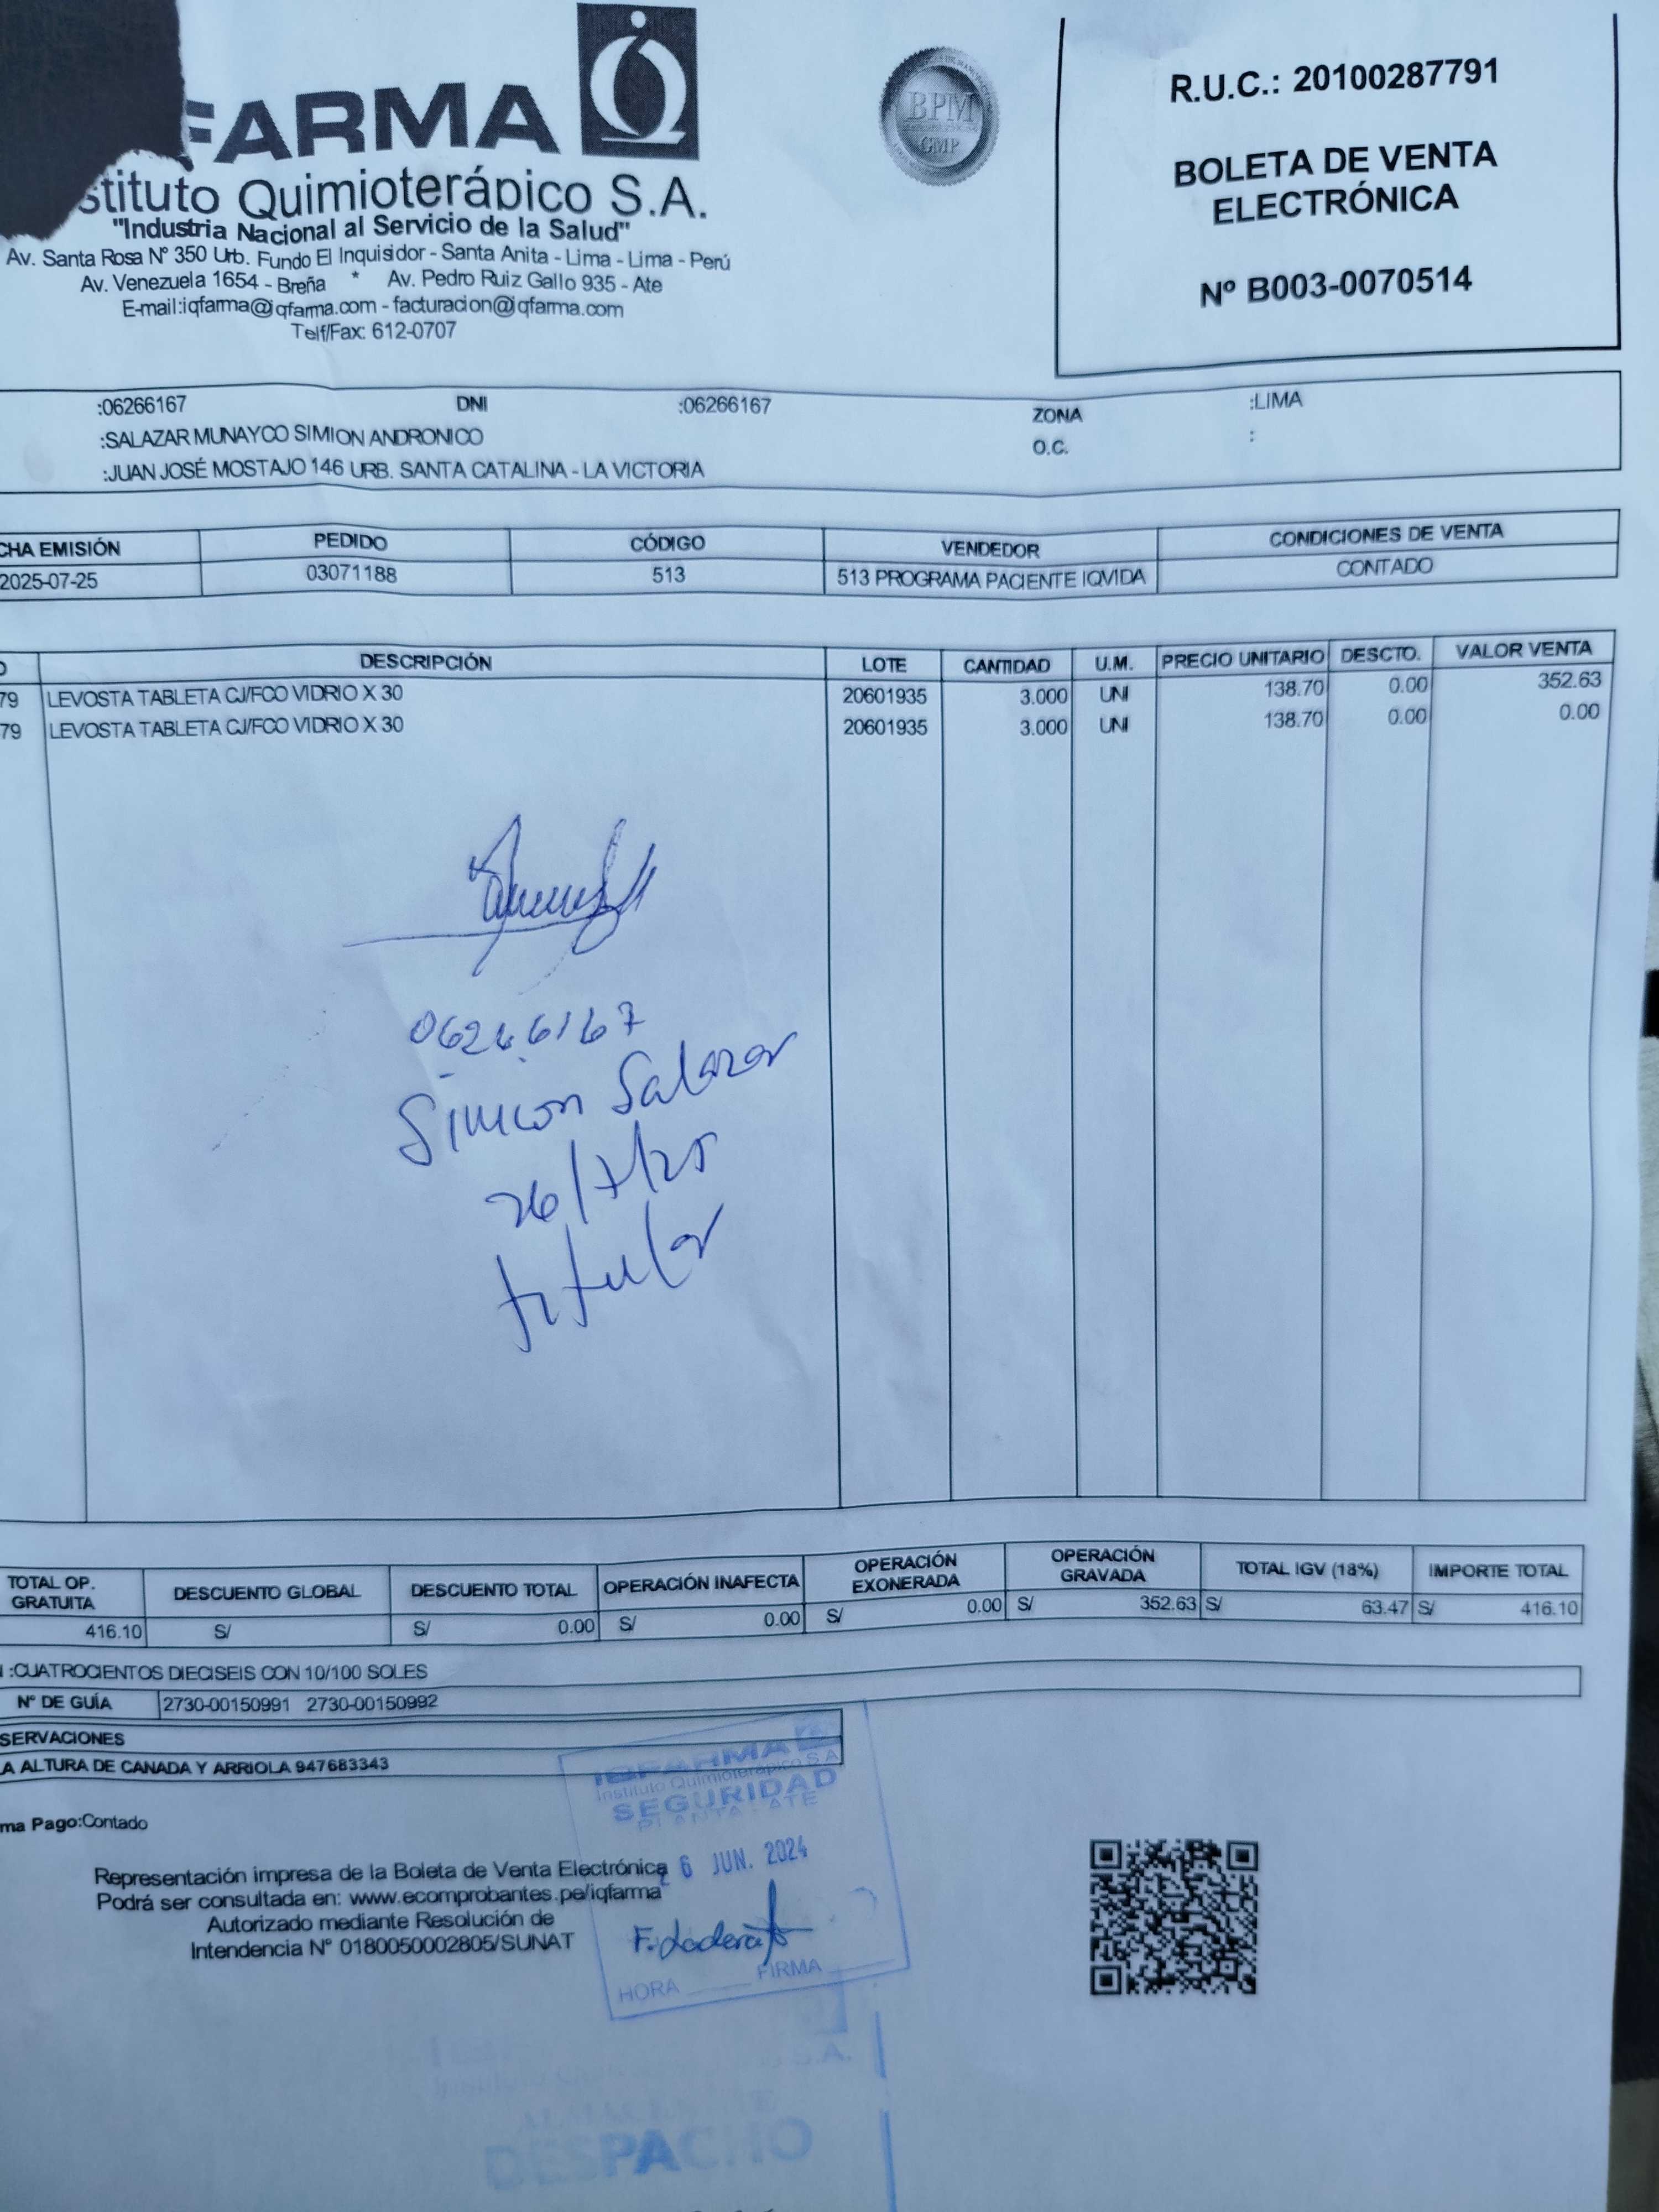 FARMA
stituto Quimioterápico S.A.
"Industria Nacional al Servicio de la Salud"
Av. Santa Rosa Nº 350 Urb. Fundo El Inquisidor - Santa Anita - Lima - Lima - Perú
Av. Venezuela 1654 - Breña * Av. Pedro Ruiz Gallo 935 - Ate
E-mail:iqfarma@iqfarma.com - facturacion@iqfarma.com
Telf/Fax: 612-0707
BPM
GMP
R.U.C.: 20100287791
BOLETA DE VENTA
ELECTRÓNICA
Nº B003-0070514
:06266167 DNI :06266167 ZONA :LIMA
:SALAZAR MUNAYCO SIMION ANDRONICO O.C. :
:JUAN JOSÉ MOSTAJO 146 URB. SANTA CATALINA - LA VICTORIA
CHA EMISIÓN PEDIDO CÓDIGO VENDEDOR CONDICIONES DE VENTA
2025-07-25 03071188 513 513 PROGRAMA PACIENTE IQVIDA CONTADO
O DESCRIPCIÓN LOTE CANTIDAD U.M. PRECIO UNITARIO DESCTO. VALOR VENTA
79 LEVOSTA TABLETA CJ/FCO VIDRIO X 30 20601935 3.000 UNI 138.70 0.00 352.63
79 LEVOSTA TABLETA CJ/FCO VIDRIO X 30 20601935 3.000 UNI 138.70 0.00 0.00
06266167
Simion Salazar
26/7/25
titular
TOTAL OP. GRATUITA DESCUENTO GLOBAL DESCUENTO TOTAL OPERACIÓN INAFECTA OPERACIÓN EXONERADA OPERACIÓN GRAVADA TOTAL IGV (18%) IMPORTE TOTAL
416.10 S/ S/ 0.00 S/ 0.00 S/ 0.00 S/ 352.63 S/ 63.47 S/ 416.10
:CUATROCIENTOS DIECISEIS CON 10/100 SOLES
Nº DE GUÍA 2730-00150991 2730-00150992
SERVACIONES
A ALTURA DE CANADA Y ARRIOLA 947683343
ma Pago:Contado
Representación impresa de la Boleta de Venta Electrónica
Podrá ser consultada en: www.ecomprobantes.pe/iqfarma
Autorizado mediante Resolución de
Intendencia Nº 0180050002805/SUNAT
IQFARMA
Instituto Quimioterápico S.A
SEGURIDAD
PLANTA - ATE
26 JUN. 2024
HORA FIRMA
S.A.
DESPACHO